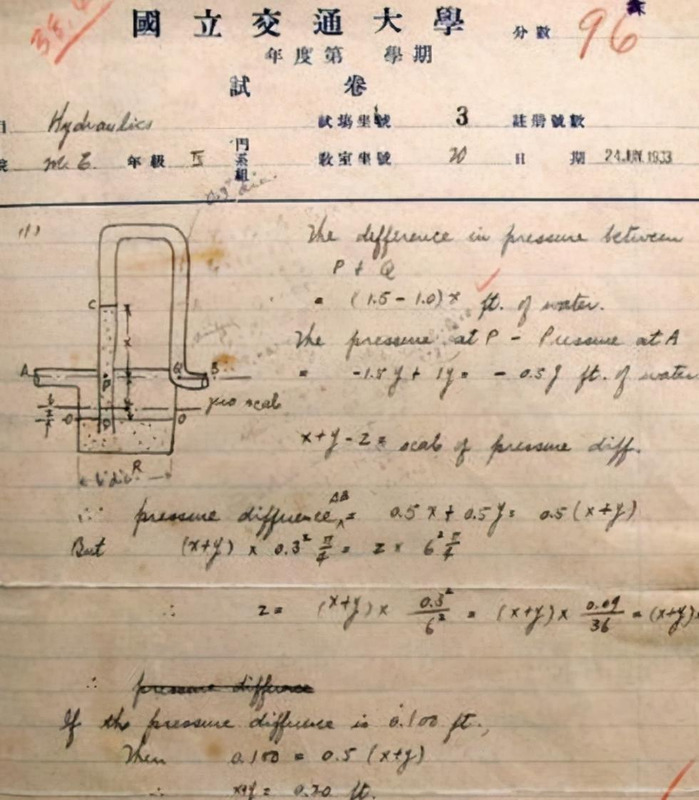 國立交通大學
分數 96
年度第 學期
試卷
Hydraulics 試場坐號 3 註册號數
M.E. 年級 IV 門系組 教室坐號 20 日期 24 JUN 1933
(1)
The difference in pressure between
P & Q
= (1.5 - 1.0)x ft. of water.
The pressure at P - Pressure at A
= -1.5y + 1y = -0.5y ft. of water
C
x
A P Q B
y
zero scale
O O
D
R
6" dia.
x+y-z = scale of pressure diff.
∴ pressure difference AB = 0.5x + 0.5y = 0.5(x+y)
But (x+y) x 0.3² π/4 = z x 6² π/4
∴ z = (x+y) x 0.3²/6² = (x+y) x 0.09/36 = (x+y)
∴ pressure difference
If the pressure difference is 0.100 ft.,
Then 0.100 = 0.5 (x+y)
∴ x+y = 0.20 ft.